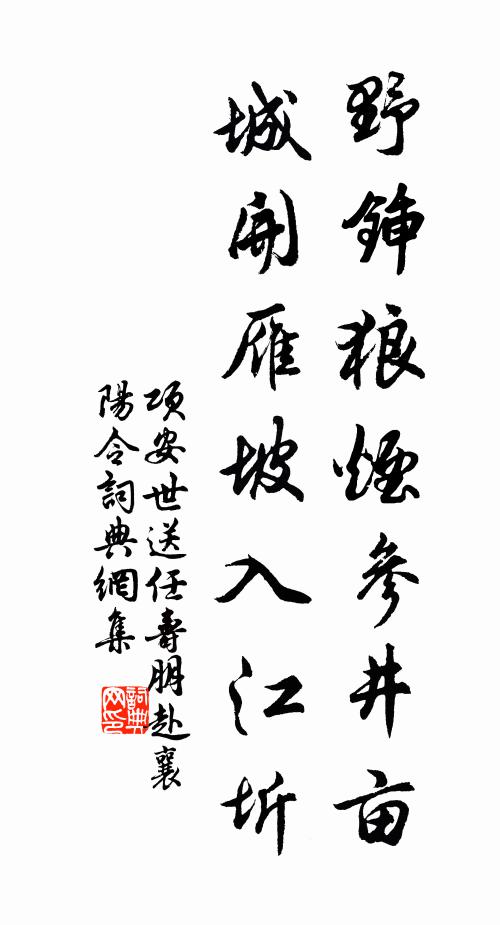 野鋪狼煙參井亩
城開雁坡入江圻
項安世送任壽朋赴襄
陽令詞典網集
詞典网印